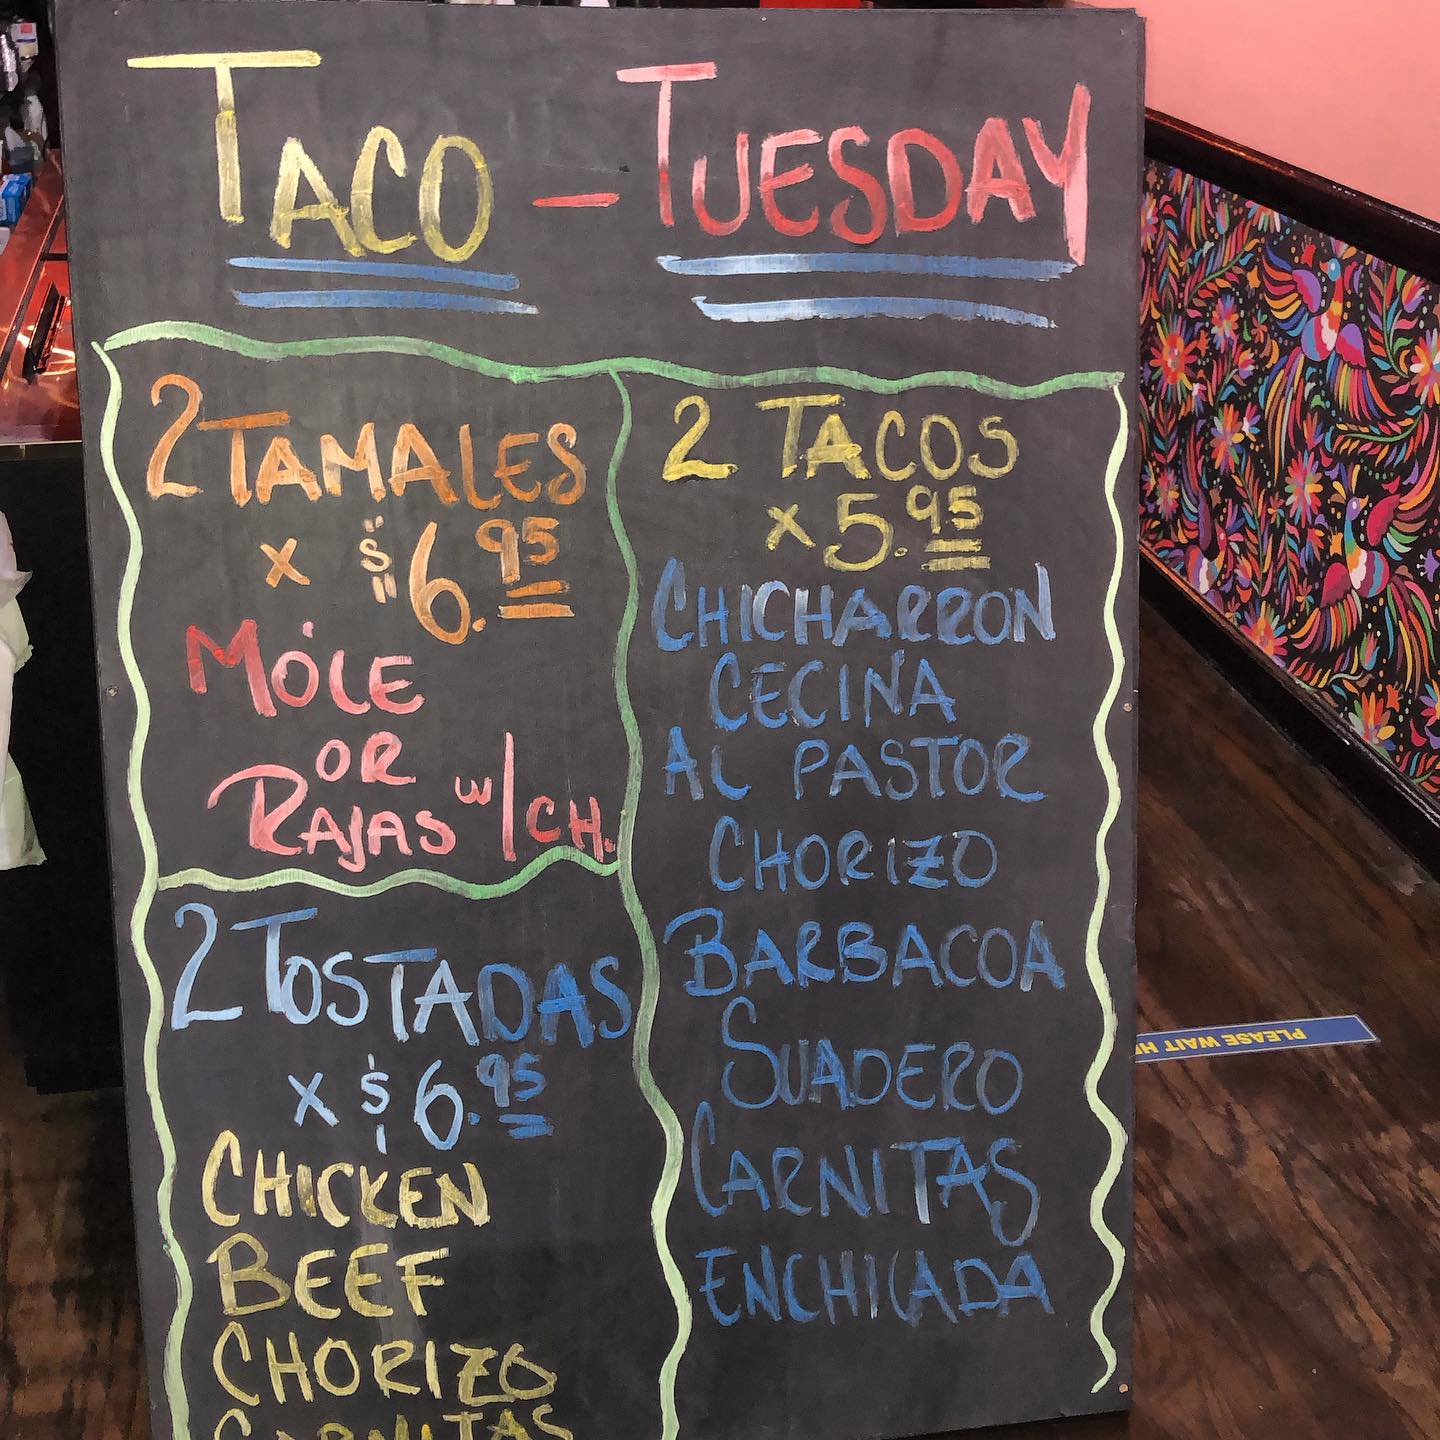 TACO - TUESDAY
2 TAMALES
x $6.95
MOLE
OR
RAJAS w/CH.
2 TOSTADAS
x $6.95
CHICKEN
BEEF
CHORIZO
CARNITAS
2 TACOS
x 5.95
CHICHARRON
CECINA
AL PASTOR
CHORIZO
BARBACOA
SUADERO
CARNITAS
ENCHILADA
PLEASE WAIT HE